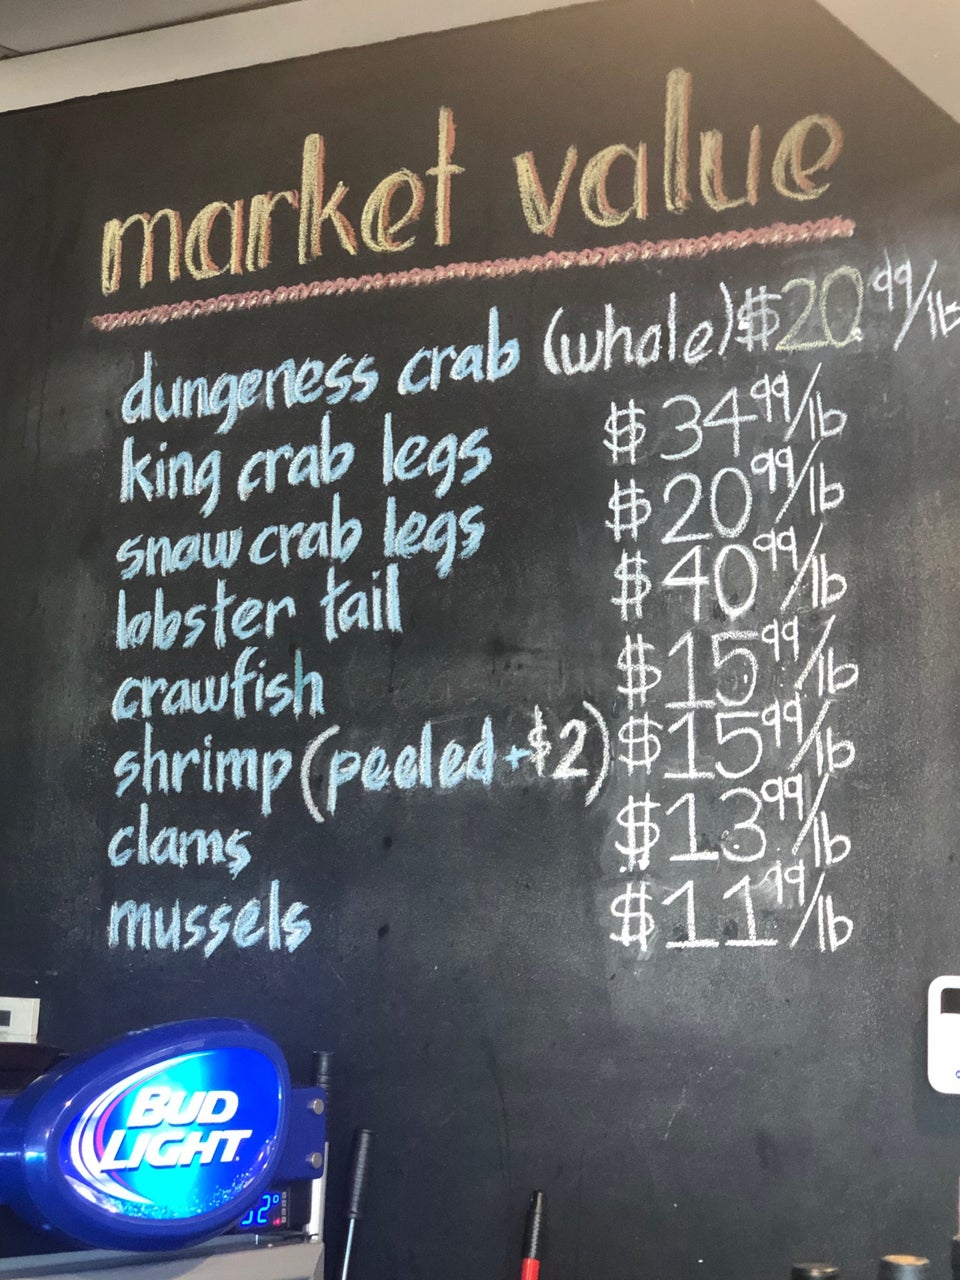 market value
dungeness crab (whole) $20.99/lb
king crab legs $34.99/lb
snow crab legs $20.99/lb
lobster tail $40.99/lb
crawfish $15.99/lb
shrimp (peeled +$2) $15.99/lb
clams $13.99/lb
mussels $11.99/lb
BUD
LIGHT